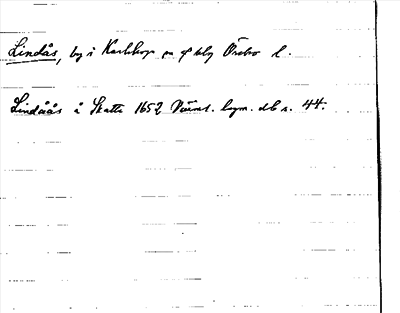 Lindås, by i Karlskoga sn och bslg Örebro l.
Lindåås å Skatte 1652 Värml. lagm. db s. 44.